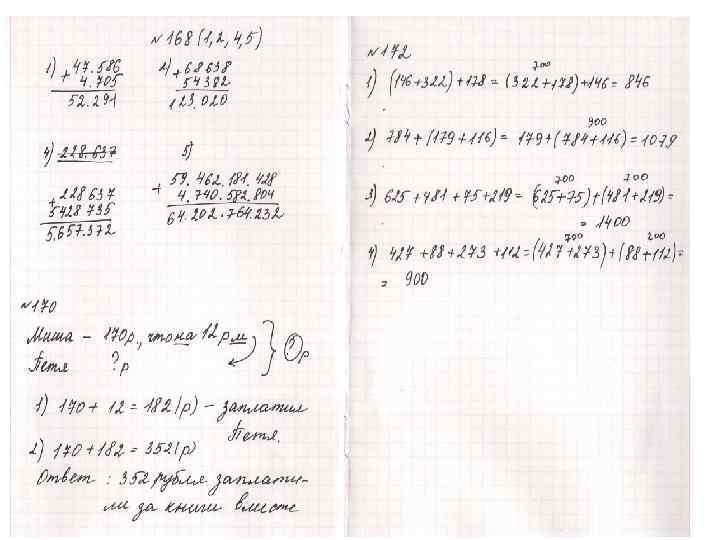 №168 (1,2,4,5)
1) + 47.586
4.705
52.291
2) + 68638
54382
123.020
4) 228.637
+ 228637
5428735
5.657.372
5)
+ 59.462.181.428
4.740.582.804
64.202.764.232
№170
Миша – 170р., что на 12 р м
Петя ?р
? р
1) 170 + 12 = 182(р) – заплатил
Петя.
2) 170 + 182 = 352(р)
Ответ : 352 рубля заплати-
ли за книги вместе
№172
700
1) (146+322)+178 = (322+178)+146 = 846
900
2) 784+(179+116) = 179+(784+116) = 1079
700 700
3) 625+481+75+219 = (625+75)+(481+219) =
= 1400
700 200
4) 427+88+273+112 = (427+273)+(88+112) =
= 900